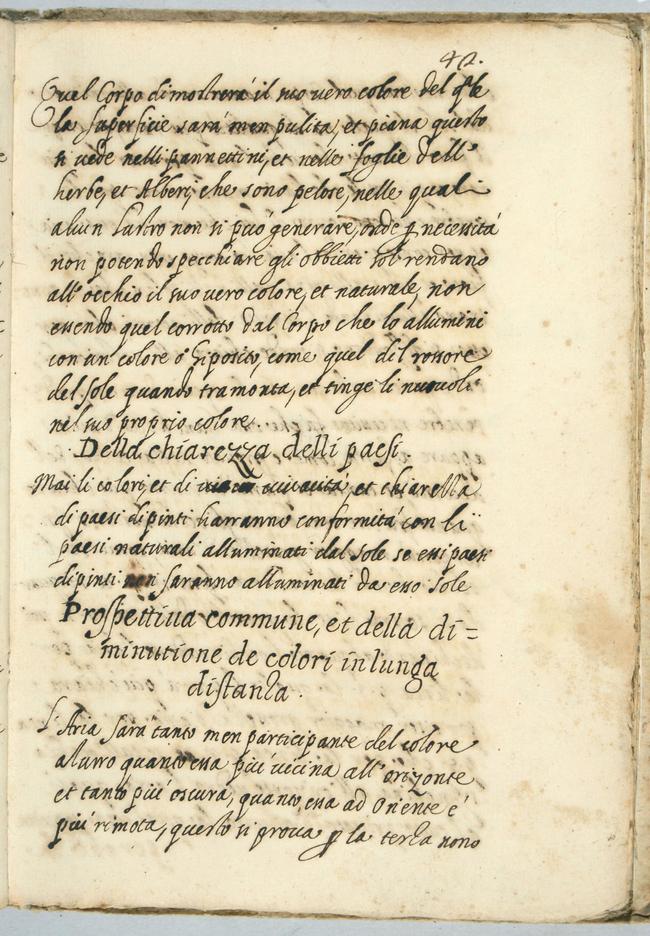 42.
Quel Corpo dimostrerá il suo vero colore del q̃le
la superficie sará men pulita, et piana questo
si vede nelli pannettini, et nelle foglie dell'
herbe, et Alberi, che sono pelose, nelle quali
alcun Lustro non si puó generare, onde ꝑ necessitá
non potendo specchiare gli obbietti sol rendano
all'occhio il suo vero colore, et naturale, non
essendo quel corrotto dal Corpo che lo allumini
con un colore ó hiposito, come quel dil rossore
del sole quando tramonta, et tinge li nuvoli
nel suo proprio colore.
Della chiarezza delli paesi.
Mai li colori, et di vivacitá, et chiarezza
di paesi dipinti harranno conformitá con li
paesi naturali alluminati dal sole se essi paesi
dipinti non saranno alluminati da esso sole
Prospettiva commune, et della di=
minutione de colori in lunga
distanza.
L'Aria sará tanto men participante del colore
azurro quanto essa piú vicina all'orizonte
et tanto piú oscura, quanto essa ad Oriente é
piú rimota, questo si prova ꝑ la terza nono